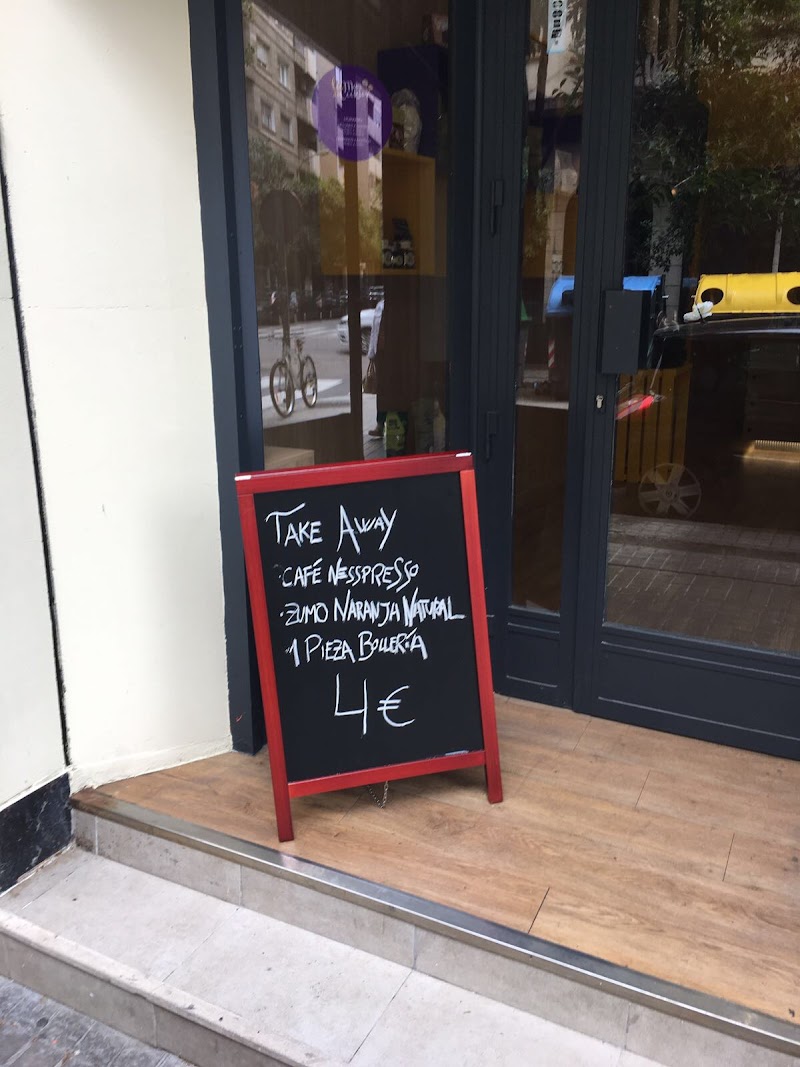 TAKE AWAY
·CAFÉ NESSPRESSO
·ZUMO NARANJA NATURAL
·1 PIEZA BOLLERÍA
4€